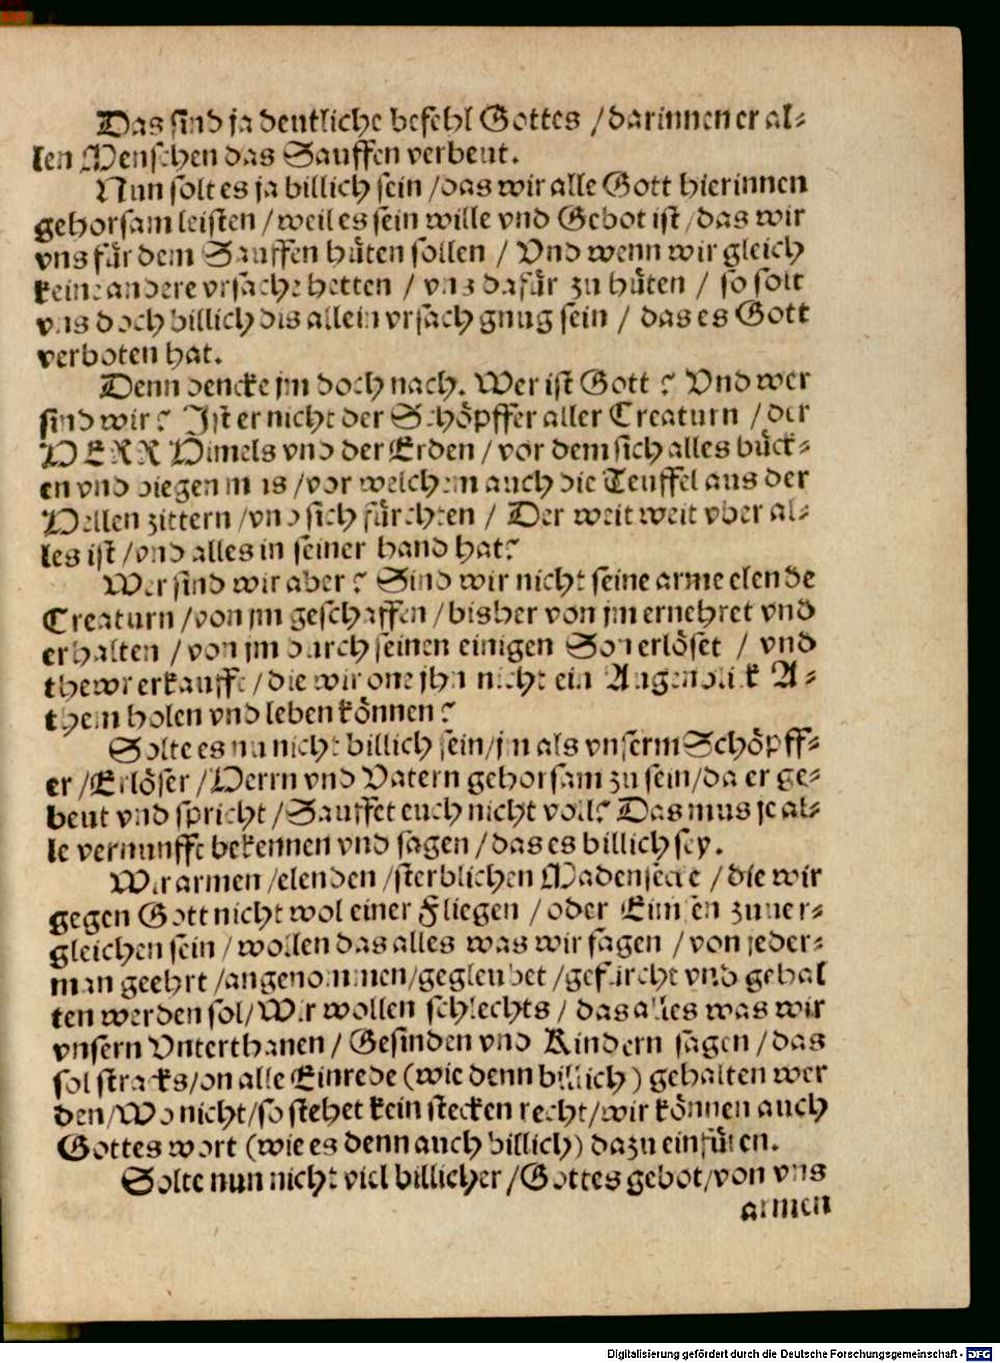 Das sind ja deutliche befehl Gottes / darinnen er al⸗
len Menschen das Sauffen verbeut.
Nun solt es ja billich sein / das wir alle Gott hierinnen
gehorsam leisten / weil es sein wille vnd Gebot ist / das wir
vns für dem Sauffen hüten sollen / Vnd wenn wir gleich
keine andere vrsache hetten / vns dafür zu hüten / so solt
vns doch billich dis allein vrsach gnug sein / das es Gott
verboten hat.
Denn dencke jm doch nach. Wer ist Gott? Vnd wer
sind wir? Ist er nicht der Schöpffer aller Creaturn / der
HERR Himels vnd der Erden / vor dem sich alles bück⸗
en vnd biegen mus / vor welchem auch die Teuffel aus der
Hellen zittern / vnd sich fürchten / Der weit weit vber al⸗
les ist / vnd alles in seiner hand hat?
Wer sind wir aber? Sind wir nicht seine arme elende
Creaturn / von jm geschaffen / bisher von jm ernehret vnd
erhalten / von jm durch seinen einigen Son erlöset / vnd
thewr erkaufft / die wir one jhn nicht ein Augenblick A⸗
them holen vnd leben können?
Solte es nu nicht billich sein / jm als vnserm Schöpff⸗
er / Erlöser / Herrn vnd Vatern gehorsam zu sein / da er ge⸗
beut vnd spricht / Sauffet euch nicht voll? Das mus je al⸗
le vernunfft bekennen vnd sagen / das es billich sey.
Wir armen / elenden / sterblichen Madensecke / die wir
gegen Gott nicht wol einer Fliegen / oder Eimsen zuuer⸗
gleichen sein / wollen das alles was wir sagen / von jeder⸗
man geehrt / angenommen / gegleubet / gefürcht vnd gehal
ten werden sol / Wir wollen schlechts / das alles was wir
vnsern Vnterthanen / Gesinden vnd Kindern sagen / das
sol stracks / on alle Einrede (wie denn billich) gehalten wer
den / Wo nicht / so stehet kein stecken recht / wir können auch
Gottes wort (wie es denn auch billich) dazu einfüren.
Solte nun nicht viel billicher / Gottes gebot / von vns
armen
Digitalisierung gefördert durch die Deutsche Forschungsgemeinschaft - DFG